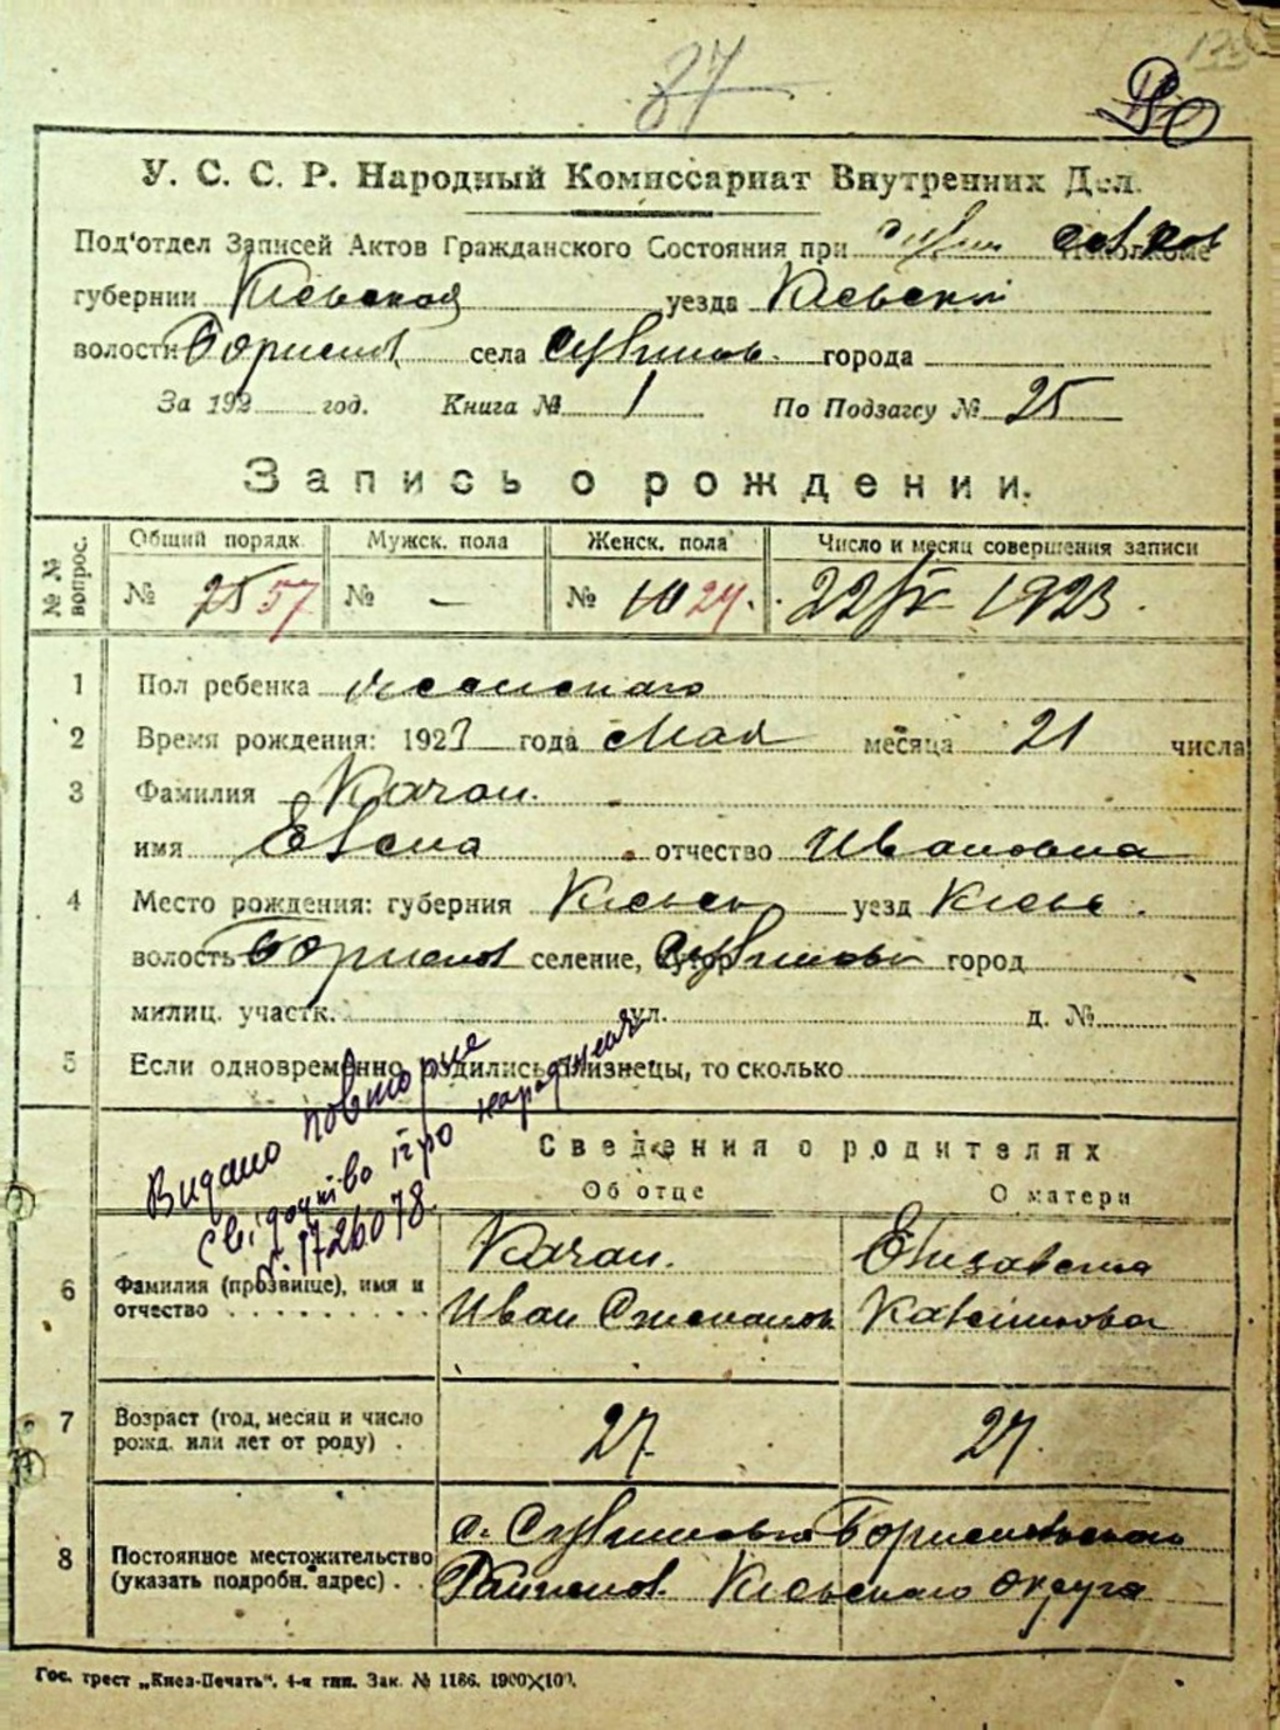 37
У. С. С. Р. Народный Комиссариат Внутренних Дел.
Под'отдел Записей Актов Гражданского Состояния при Исполкоме
губернии Киевской уезда Киевский
волости Бориспол села города
За 192 год. Книга № 1 По Подзагсу № 25
Запись о рождении.
№ № вопрос.
Общий порядк. Мужск. пола Женск. пола Число и месяц совершения записи
№ 25 57 № — № 10 24. 22/V 1923.
1 Пол ребенка женскаго
2 Время рождения: 1923 года Мая месяца 21 числа
3 Фамилия Качан.
имя Елена отчество Ивановна
4 Место рождения: губерния Киевск уезд Киев.
волость Борispол селение, хутор город
милиц. участк. ул. д. №
5 Если одновременно родились близнецы, то сколько
Видано повторне
свідоцтво про народження
№ 1726078.
Сведения о родителях
Об отце О матери
6 Фамилия (прозвище), имя и отчество . . . . . . . . . .
Качан. Елизавета
Иван Степанов
7 Возраст (год, месяц и число рожд. или лет от роду) . .
27. 27.
8 Постоянное местожительство (указать подробн. адрес) . .
с. Бориспольскаго
Киевскаго округа
Гос. трест „Киев-Печать“. 4-я тип. Зак. № 1186.